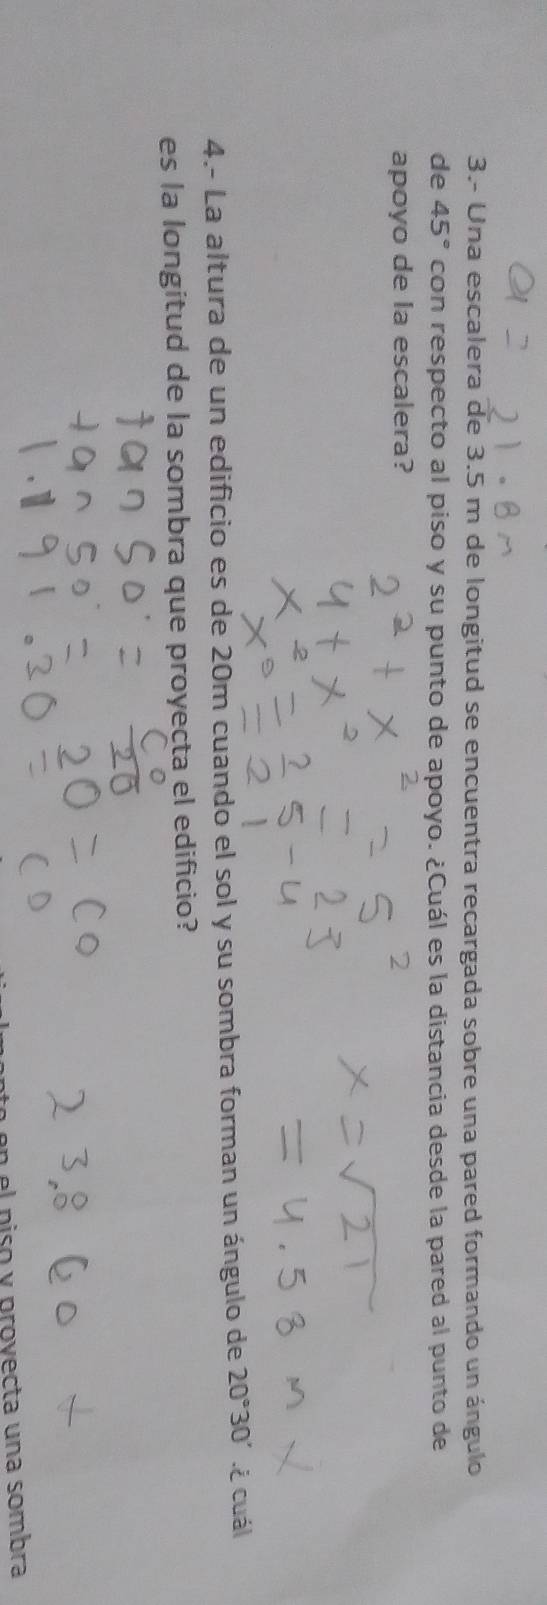 a = 21.8m
3.- Una escalera de 3.5 m de longitud se encuentra recargada sobre una pared formando un ángulo
de 45° con respecto al piso y su punto de apoyo. ¿Cuál es la distancia desde la pared al punto de
apoyo de la escalera?
2² + x² = 5²
4 + x² = 23
x² = 25 - 4
x² = 21
x = √21
= 4.58 m x
4.- La altura de un edificio es de 20m cuando el sol y su sombra forman un ángulo de 20°30´ .¿ cuál
es la longitud de la sombra que proyecta el edificio?
tan 50° = co/20
tan 50° = 20 = co
1.191.20 = co
23.8 co x
en el piso y proyecta una sombra